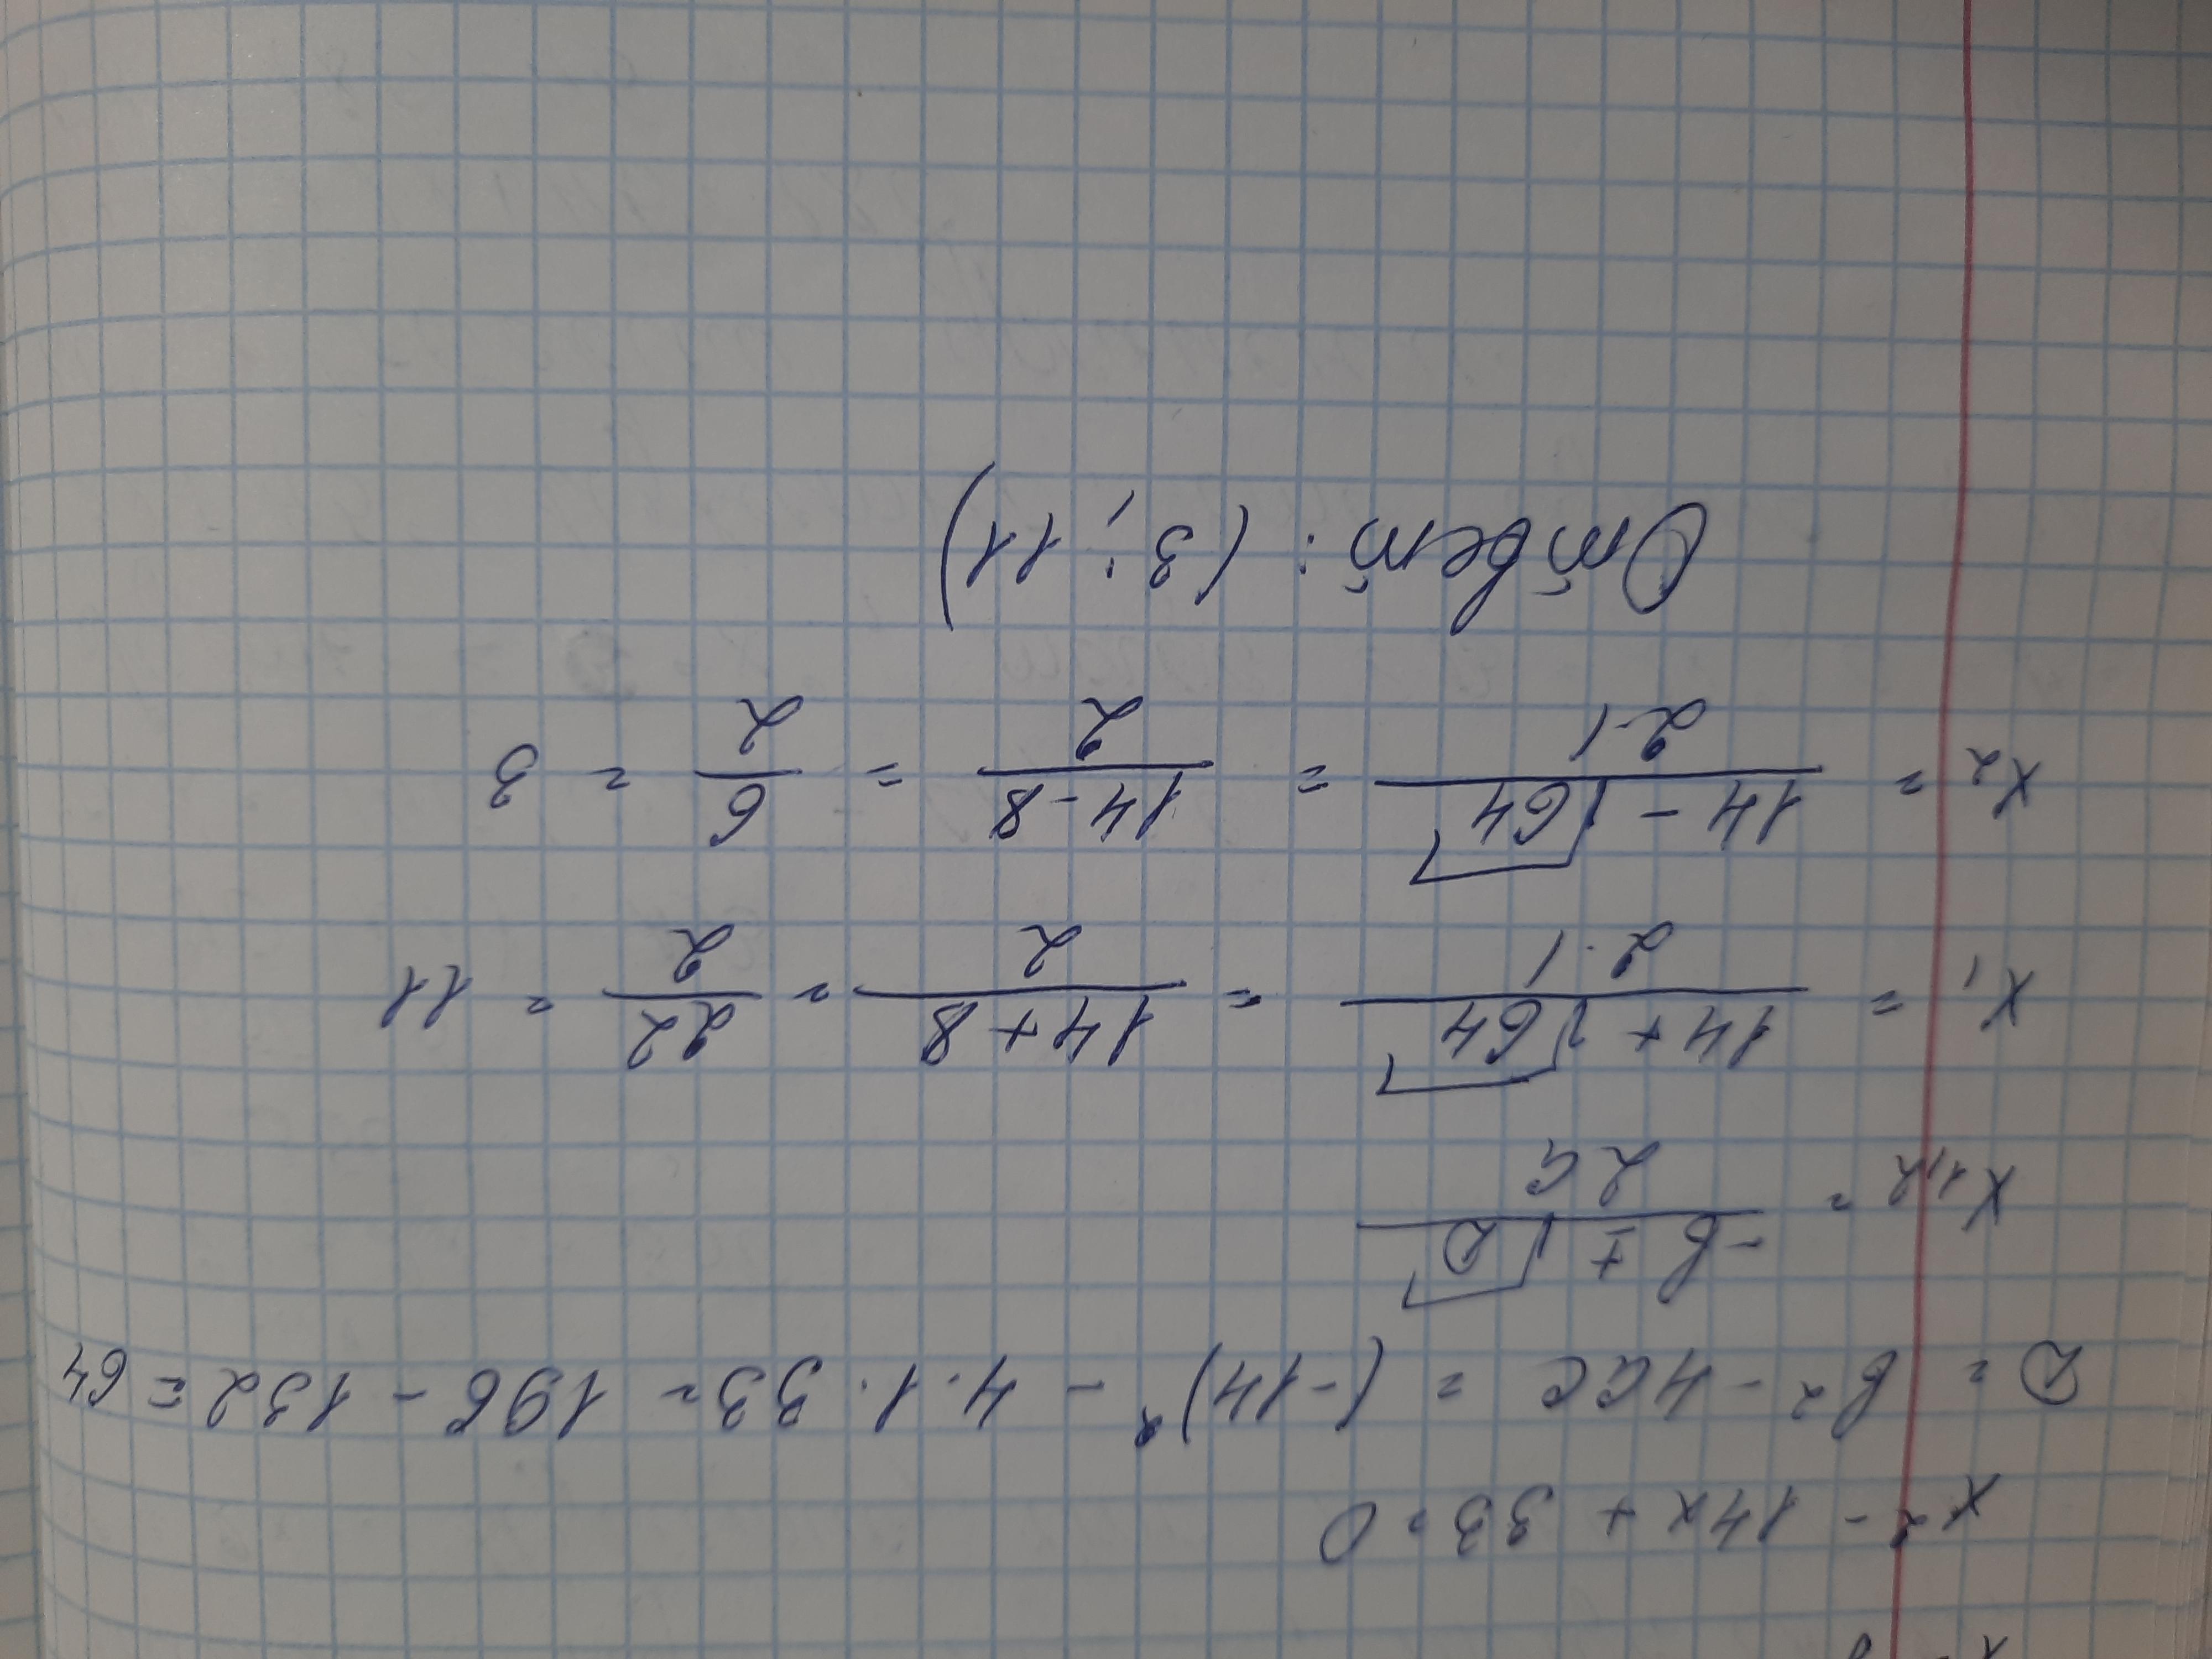 x² - 14x + 33 = 0
D = b² - 4ac = (-14)² - 4·1·33 = 196 - 132 = 64
x₁,₂ = (-b ± √D) / 2a
x₁ = (14 + √64) / 2·1 = (14 + 8) / 2 = 22 / 2 = 11
x₂ = (14 - √64) / 2·1 = (14 - 8) / 2 = 6 / 2 = 3
Ответ: (3; 11)